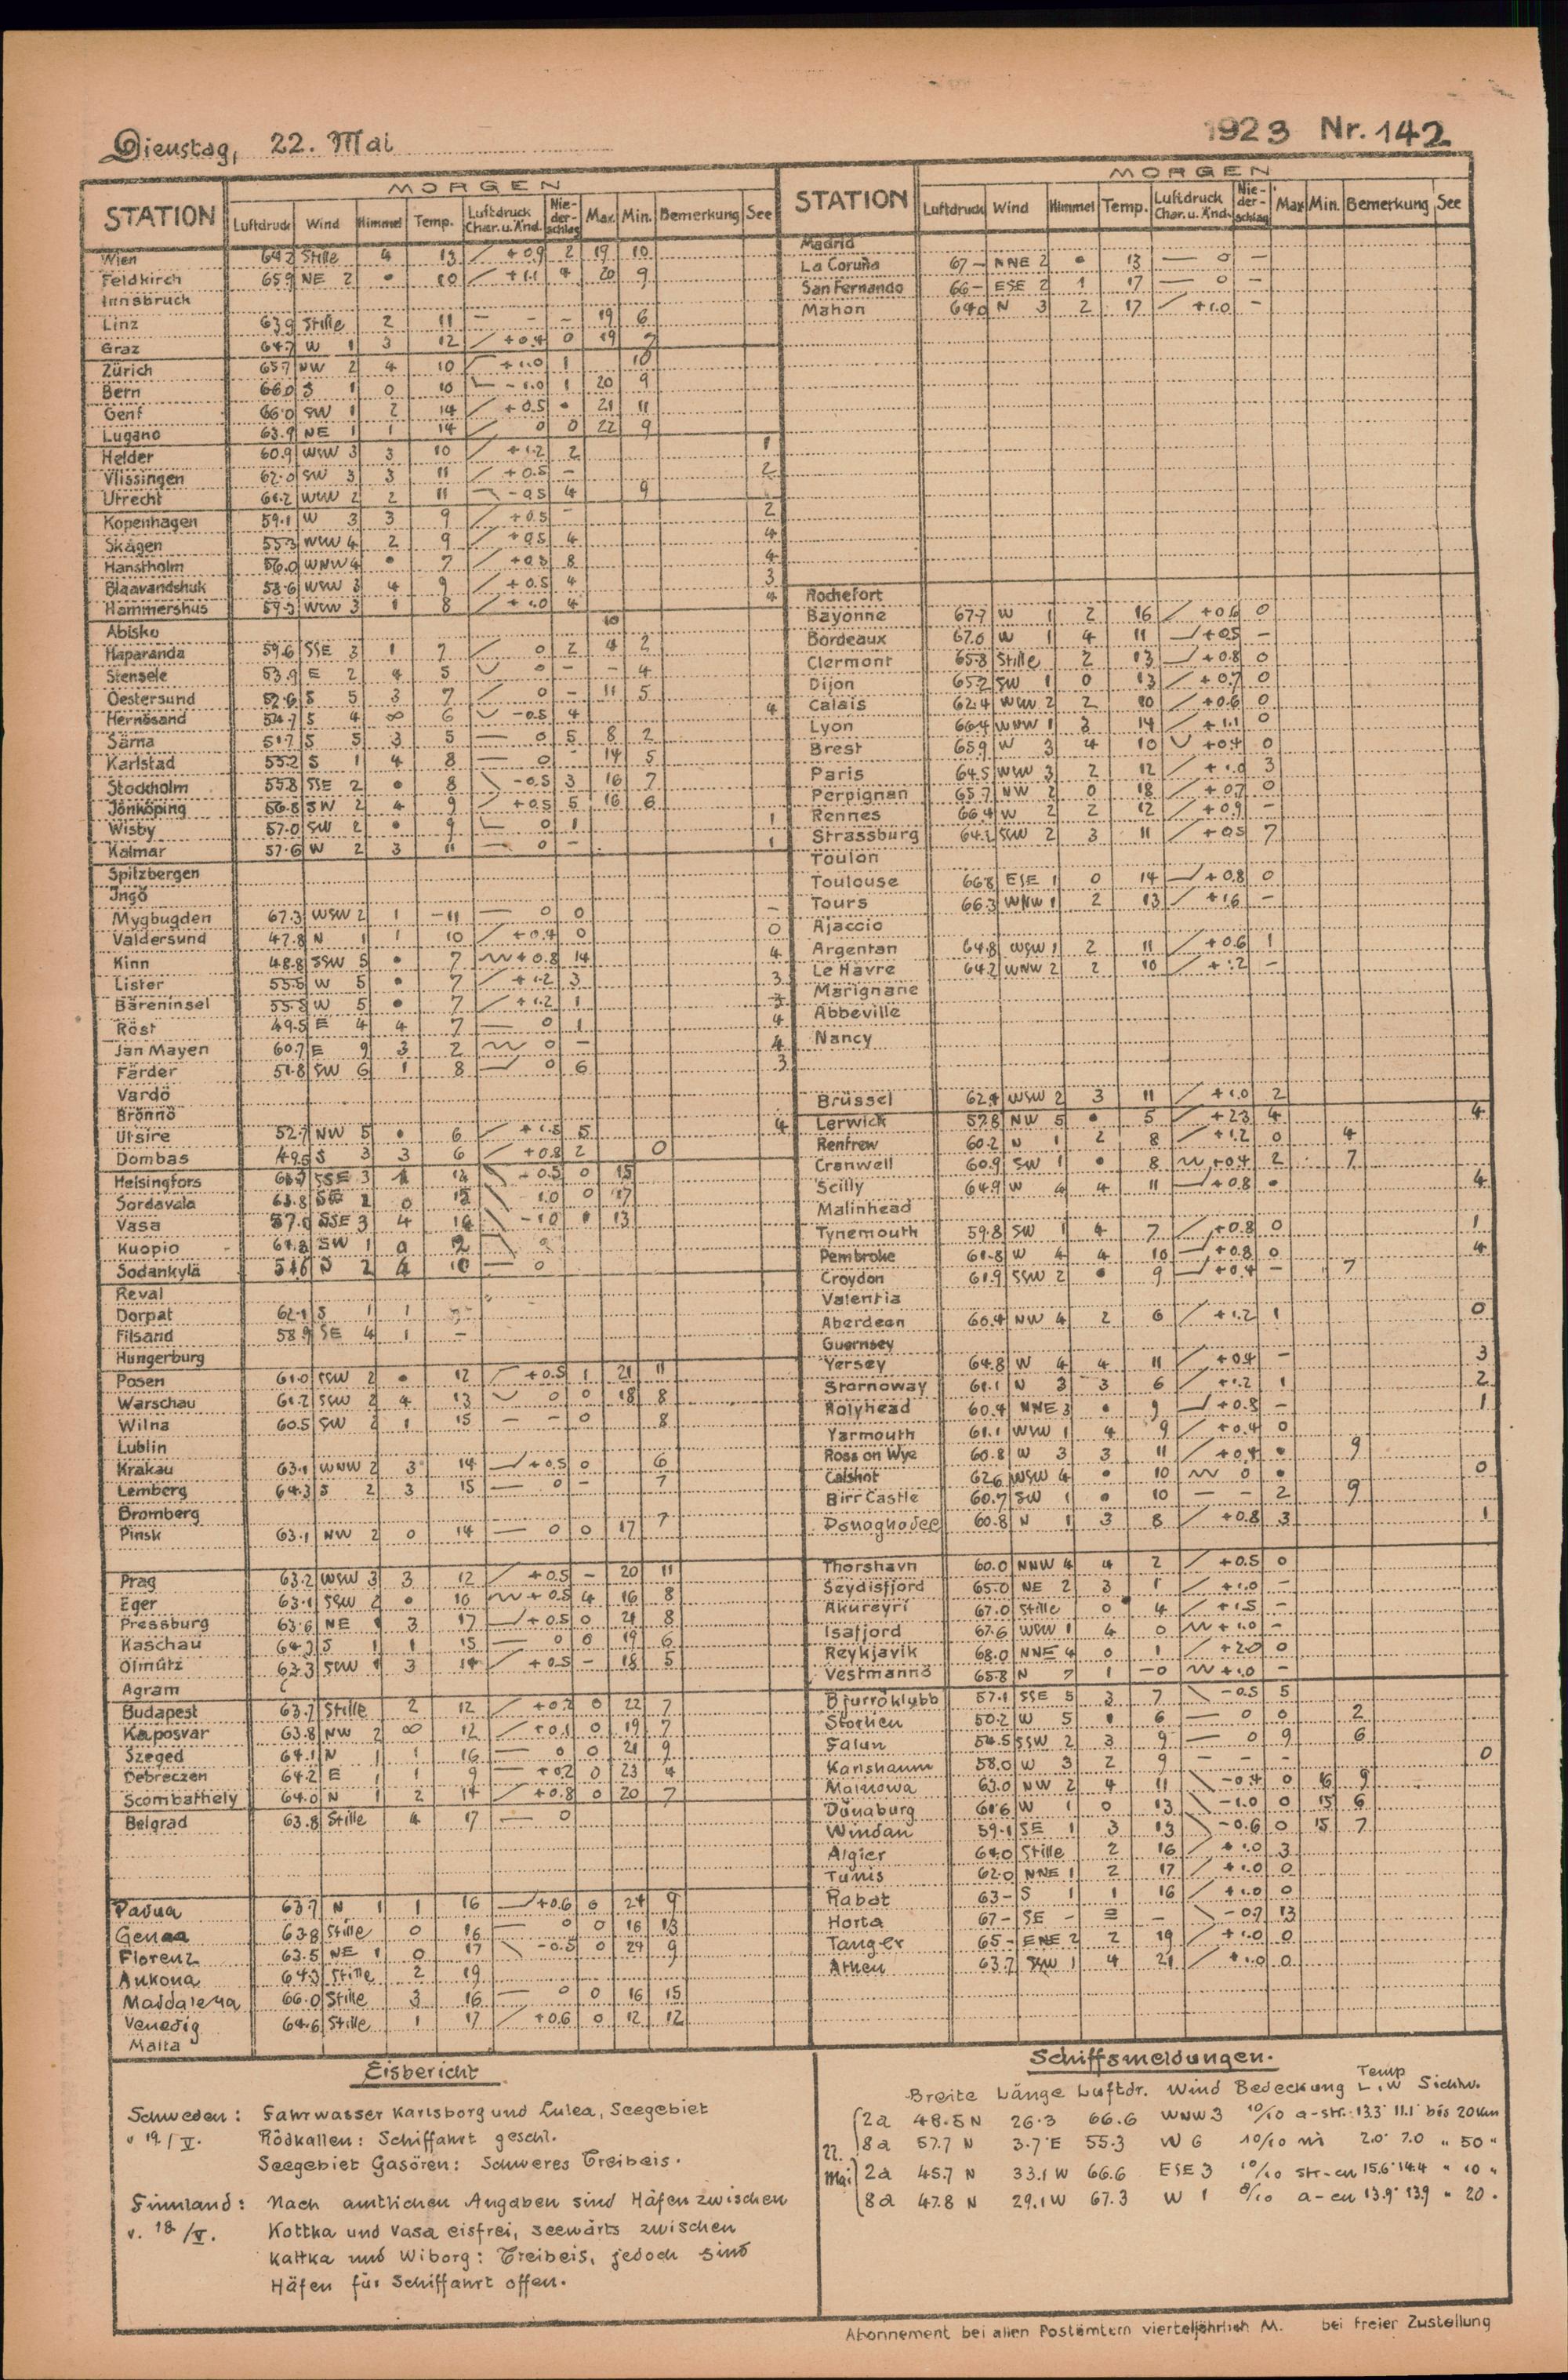 Dienstag, 22. Mai
1923 Nr. 142
MORGEN
STATION Luftdruck Wind Himmel Temp. Luftdruck Char. u. Änd. Nie-der-schlag Max. Min. Bemerkung See
Wien 64.2 Stille 4 13 / +0.9 2 19 10
Feldkirch 65.9 NE 2 • 10 / +1.1 4 20 9
Innsbruck
Linz 63.9 Stille 2 11 — – – 19 6
Graz 64.7 W 1 3 12 / +0.4 0 19 7
Zürich 65.7 NW 2 4 10 +1.0 1 10
Bern 66.0 S 1 0 10 -1.0 1 20 9
Genf 66.0 SW 1 2 14 / +0.5 • 21 11
Lugano 63.9 NE 1 1 14 / 0 0 22 9
Helder 60.9 WSW 3 3 10 / +1.2 2 1
Vlissingen 62.0 SW 3 3 11 / +0.5 – 2
Utrecht 61.2 WSW 2 2 11 -0.5 4 9
Kopenhagen 59.1 W 3 3 9 / +0.5 – 2
Skagen 55.3 WSW 4 2 9 / +0.5 4 4
Hanstholm 56.0 WNW 4 • 7 / +0.5 8 4
Blaavandshuk 58.6 WSW 3 4 9 / +0.5 4 3
Hammershus 59.3 WSW 3 1 8 / +1.0 4 4
Abisko 10
Haparanda 59.6 SSE 3 1 7 / 0 2 4 2
Stensele 53.9 E 2 4 5 0 – – 4
Oestersund 52.6 S 5 3 7 / 0 – 11 5
Hernösand 54.7 S 4 ∞ 6 -0.5 4 4
Särna 51.7 S 5 3 5 — 0 5 8 2
Karlstad 55.2 S 1 4 8 — 0 – 14 5
Stockholm 55.8 SSE 2 • 8 \ -0.5 3 16 7
Jönköping 56.8 SW 2 4 9 / +0.5 5 16 6
Wisby 57.0 SW 2 • 9 0 1 1
Kalmar 57.6 W 2 3 11 — 0 – 1
Spitzbergen
Ingö
Mygbugden 67.3 WSW 2 1 -11 — 0 0 –
Valdersund 47.8 N 1 1 10 / +0.4 0 0
Kinn 48.8 SSW 5 • 7 +0.8 14 4
Lister 55.5 W 5 • 7 / +1.2 3 3
Bäreninsel 55.8 W 5 • 7 / +1.2 1 3
Röst 49.5 E 4 4 7 — 0 1 4
Jan Mayen 60.7 E 9 3 2 0 – 4
Färder 51.8 SW 6 1 8 0 6 3
Vardö
Brönnö
Utsire 52.7 NW 5 • 6 / +1.5 5 4
Dombas 49.5 S 3 3 6 / +0.8 2 0
Helsingfors SSE 3 \ -0.5 0 15
Sordavala 63.8 0 \ 1.0 0 17
Vasa 57.0 SSE 3 4 \ -1.0 13
Kuopio SW 1 0
Sodankylä S 2 4 10 — 0
Reval
Dorpat 62.1 S 1 1
Filsand 58.9 SE 4 1 –
Hungerburg
Posen 61.0 SSW 2 • 12 +0.5 1 21 11
Warschau 61.2 SSW 2 4 13 0 0 18 8
Wilna 60.5 SW 2 1 15 — – 0 8
Lublin
Krakau 63.1 WNW 2 3 14 +0.5 0 6
Lemberg 64.3 S 2 3 15 — 0 – 7
Bromberg 7
Pinsk 63.1 NW 2 0 14 — 0 0 17
Prag 63.2 WSW 3 3 12 / +0.5 – 20 11
Eger 63.1 SSW 2 • 10 +0.5 4 16 8
Pressburg 63.6 NE 1 3 17 +0.5 0 21 8
Kaschau 64.3 S 1 1 15 — 0 0 19 6
Olmütz 62.3 SSW 1 3 14 / +0.5 – 18 5
Agram
Budapest 63.7 Stille 2 12 / +0.2 0 22 7
Kaposvar 63.8 NW 2 ∞ 12 / +0.1 0 19 7
Szeged 64.1 N 1 1 16 — 0 0 21 9
Debreczen 64.2 E 1 1 9 — +0.2 0 23 4
Szombathely 64.0 N 1 2 14 / +0.8 0 20 7
Belgrad 63.8 Stille 4 17 — 0
Padua 63.7 N 1 1 16 +0.6 0 24 9
Genua 63.8 Stille 0 16 — 0 0 16 13
Florenz 63.5 NE 1 0 17 \ -0.5 0 24 9
Ankona 64.3 Stille 2 19
Maddalena 66.0 Stille 3 16 — 0 0 16 15
Venedig 64.6 Stille 1 17 / +0.6 0 12 12
Malta
MORGEN
STATION Luftdruck Wind Himmel Temp. Luftdruck Char. u. Änd. Nie-der-schlag Max Min. Bemerkung See
Madrid
La Coruña 67– NNE 2 • 13 — 0 –
San Fernando 66– ESE 2 1 17 — 0 –
Mahon 64.0 N 3 2 17 / +1.0 –
Rochefort
Bayonne 67.7 W 1 2 16 / +0.6 0
Bordeaux 67.0 W 1 4 11 +0.5 –
Clermont 65.8 Stille 2 13 +0.8 0
Dijon 65.2 SW 1 0 13 / +0.7 0
Calais 62.4 WSW 2 2 10 / +0.6 0
Lyon 66.4 WNW 1 3 14 / +1.1 0
Brest 65.9 W 3 4 10 +0.4 0
Paris 64.5 WSW 3 2 12 / +1.0 3
Perpignan 65.7 NW 2 0 18 / +0.7 0
Rennes 66.4 W 2 2 12 / +0.9 –
Strassburg 64.1 SSW 2 3 11 / +0.5 7
Toulon
Toulouse 66.8 ESE 1 0 14 +0.8 0
Tours 66.3 WNW 1 2 13 / +1.6 –
Ajaccio
Argentan 64.8 WSW 1 2 11 / +0.6 1
Le Havre 64.2 WNW 2 2 10 / +1.2 –
Marignane
Abbeville
Nancy
Brüssel 62.4 WSW 2 3 11 / +1.0 2
Lerwick 57.8 NW 5 • 5 / +2.3 4 4
Renfrew 60.2 N 1 2 8 / +1.2 0 4
Cranwell 60.9 SW 1 • 8 +0.4 2 7
Scilly 64.9 W 4 4 11 +0.8 • 4
Malinhead
Tynemouth 59.8 SW 1 4 7 / +0.8 0 1
Pembroke 61.8 W 4 4 10 +0.8 0 4
Croydon 61.9 SSW 2 • 9 +0.4 – 7
Valentia
Aberdeen 60.4 NW 4 2 6 / +1.2 1 0
Guernsey
Yersey 64.8 W 4 4 11 / +0.4 – 3
Stornoway 61.1 N 3 3 6 / +1.2 1 2
Holyhead 60.4 NNE 3 • 9 +0.8 – 1
Yarmouth 61.1 WSW 1 4 9 / +0.4 0
Ross on Wye 60.8 W 3 3 11 / +0.4 • 9
Calshot 62.6 WSW 4 • 10 0 • 0
Birr Castle 60.7 SW 1 • 10 — – 2 9
Donaghadee 60.8 N 1 3 8 / +0.8 3 1
Thorshavn 60.0 NNW 4 4 2 / +0.5 0
Seydisfjord 65.0 NE 2 3 1 / +1.0 –
Akureyri 67.0 Stille 0 4 / +1.5 –
Isafjord 67.6 WSW 1 4 0 +1.0 –
Reykjavik 68.0 NNE 4 0 1 / +2.0 0
Vestmannö 65.8 N 7 1 -0 +1.0 –
Bjurröklubb 57.1 SSE 5 3 7 \ -0.5 5
50.2 W 5 • 6 — 0 0 2
Falun 54.5 SSW 2 3 9 — 0 9 6
Karlshamn 58.0 W 3 2 9 – – – 0
63.0 NW 2 4 11 \ -0.4 0 16 9
Dünaburg 61.6 W 1 0 13 \ -1.0 0 15 6
Windau 59.1 SE 1 3 13 \ -0.6 0 15 7
Algier 64.0 Stille 2 16 / +1.0 3
Tunis 62.0 NNE 1 2 17 / +1.0 0
Rabat 63– S 1 1 16 / +1.0 0
Horta 67– SE – = – \ -0.7 13
Tanger 65– ENE 2 2 19 / +1.0 0
Athen 63.7 SSW 1 4 21 / +1.0 0
Eisbericht
Schweden: Fahrwasser Karlsborg und Lulea, Seegebiet
v 19./V. Rödkallen: Schiffahrt geschl.
Seegebiet Gasören: Schweres Treibeis.
Finnland: Nach amtlichen Angaben sind Häfen zwischen
v. 18./V. Kottka und Vasa eisfrei, seewärts zwischen
Kattka und Wiborg: Treibeis, jedoch sind
Häfen für Schiffahrt offen.
Schiffsmeldungen.
Breite Länge Luftdr. Wind Bedeckung Temp L. W Sichtw.
22. Mai
2a 48.5 N 26.3 66.6 WNW 3 10/10 a-str. 13.3° 11.1° bis 20 km
8a 57.7 N 3.7° E 55.3 W 6 10/10 ni 2.0° 7.0 " 50 "
2a 45.7 N 33.1 W 66.6 ESE 3 10/10 str-cu 15.6° 14.4 " 10 "
8a 47.8 N 29.1 W 67.3 W 1 8/10 a-cu 13.9° 13.9 " 20 "
Abonnement bei allen Postämtern vierteljährlich M. bei freier Zustellung